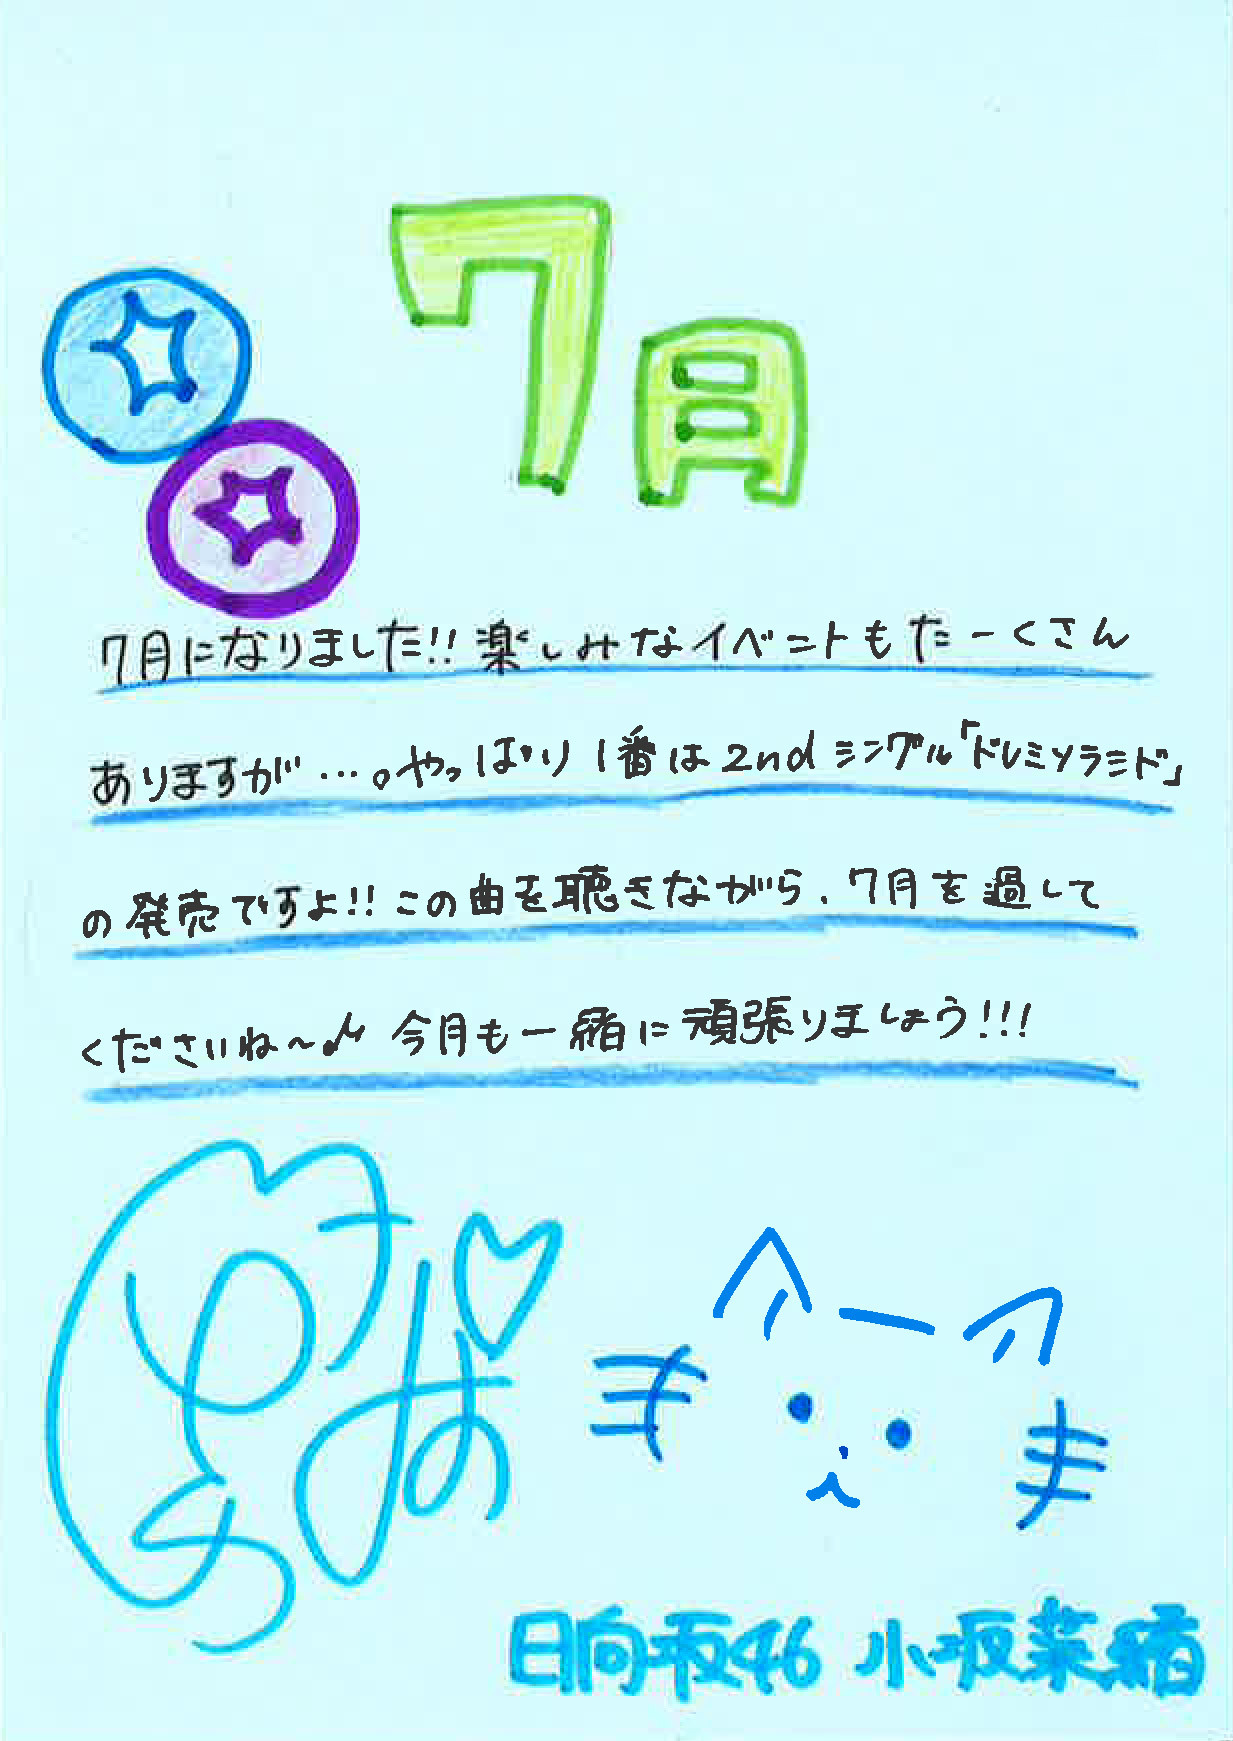 7月
7月になりました!! 楽しみなイベントもたーくさん
ありますが…。やっぱり1番は2ndシングル「ドレミソラシド」
の発売ですよ!! この曲を聴きながら、7月を過して
くださいね〜♪ 今月も一緒に頑張りましょう!!!
日向坂46 小坂菜緒